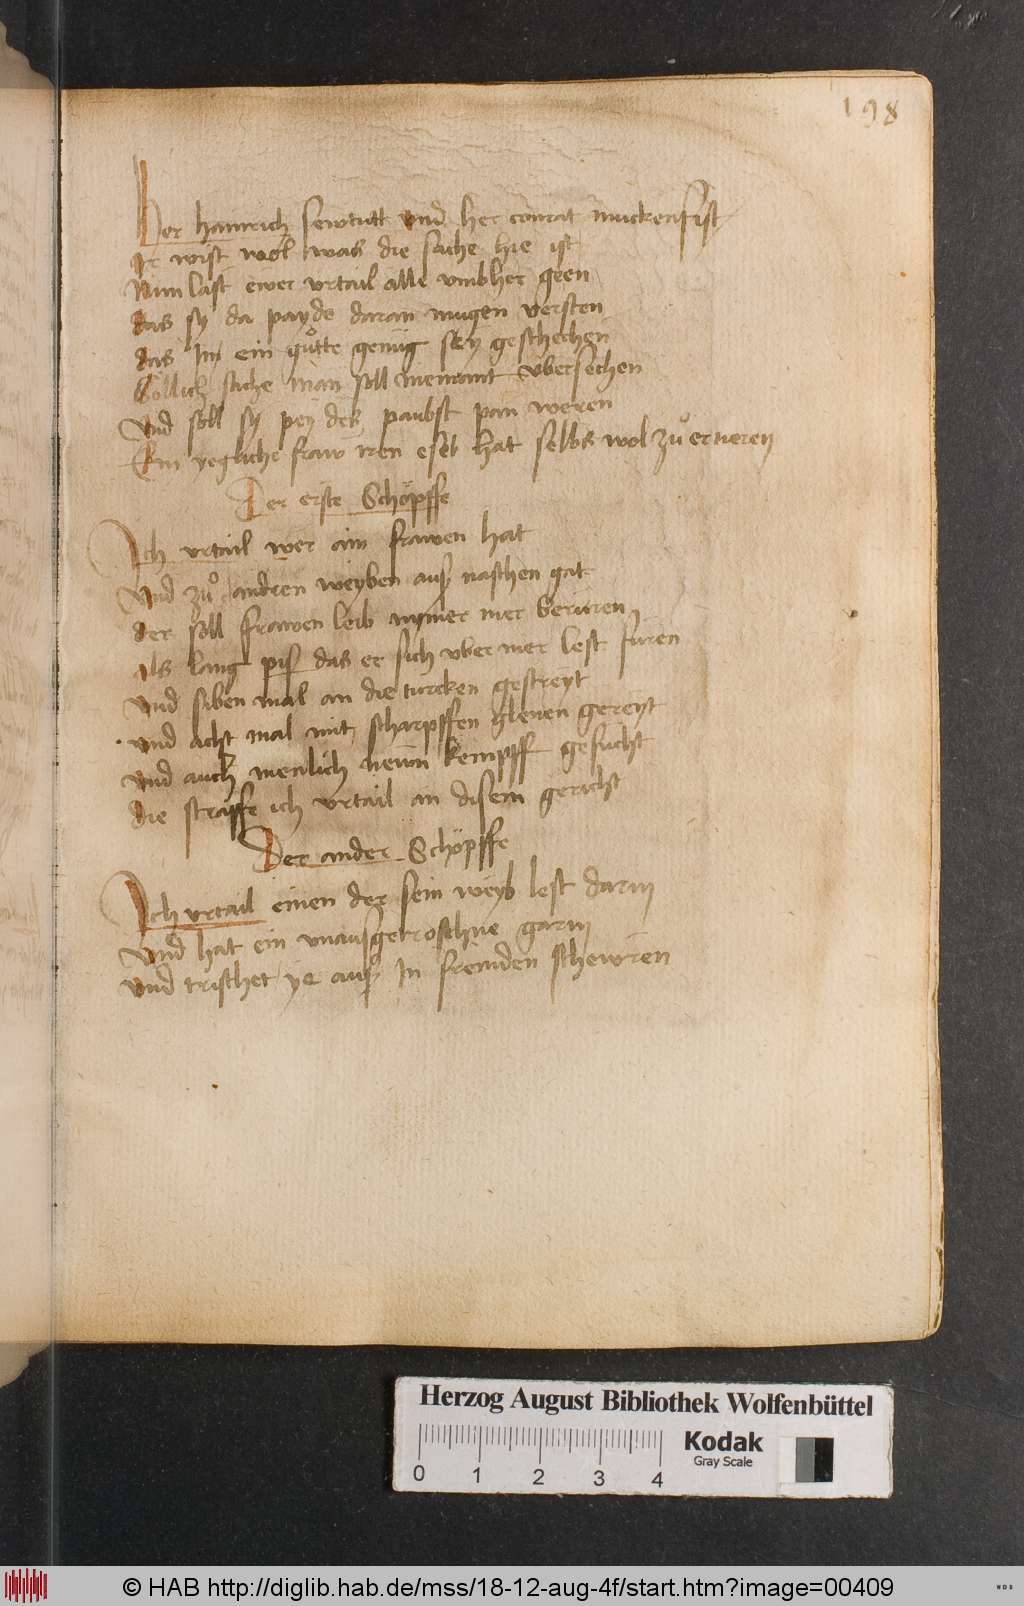 198
Her hainrich sewtutt vnd her conrat muckenfist
Ir wist wol was die sache hie ist
Nun last ewer vrtail alle vmbher geen
das sy da payde daran mugen versten
das Im ein gůtte genüg sey geschechen
Söllich sache man soll niemant übersechen
Vnd soll sy pey des paubst pan weren
Ein yegliche fraw iren esel hat selbs wol zů erneren
Der erste Schöpffe
Ich vrtail wer ain frawen hat
Vnd zů andren weyben auß naschen gat
der soll frawen leib nymer mer berüren
als lang piß das er sich vber mer lest füren
vnd siben mal an die turcken gestreyt
vnd acht mal mit scharpffen glenen gereyt
vnd auch menlich neün kempff gesucht
die straffe ich vrtail an disem gericht
Der ander Schöpffe
Ich vrtail einen der sein weyb lest darin
Vnd hat ein vnaußgetroschne garin
vnd trischet ye auß In fremden schewren
Herzog August Bibliothek Wolfenbüttel
Kodak
Gray Scale
0 1 2 3 4
© HAB http://diglib.hab.de/mss/18-12-aug-4f/start.htm?image=00409